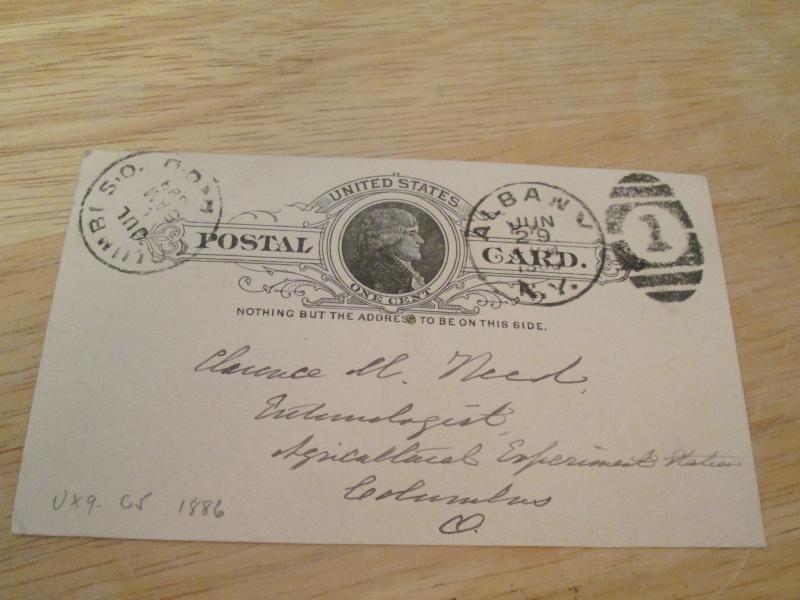 UNITED STATES
POSTAL CARD.
ONE CENT
NOTHING BUT THE ADDRESS TO BE ON THIS SIDE.
ALBANY
JUN
29
N.Y.
1
JUL
Clarence M. Weed,
Entomologist,
Agricultural Experiment Station
Columbus
O.
UX9 C5 1886